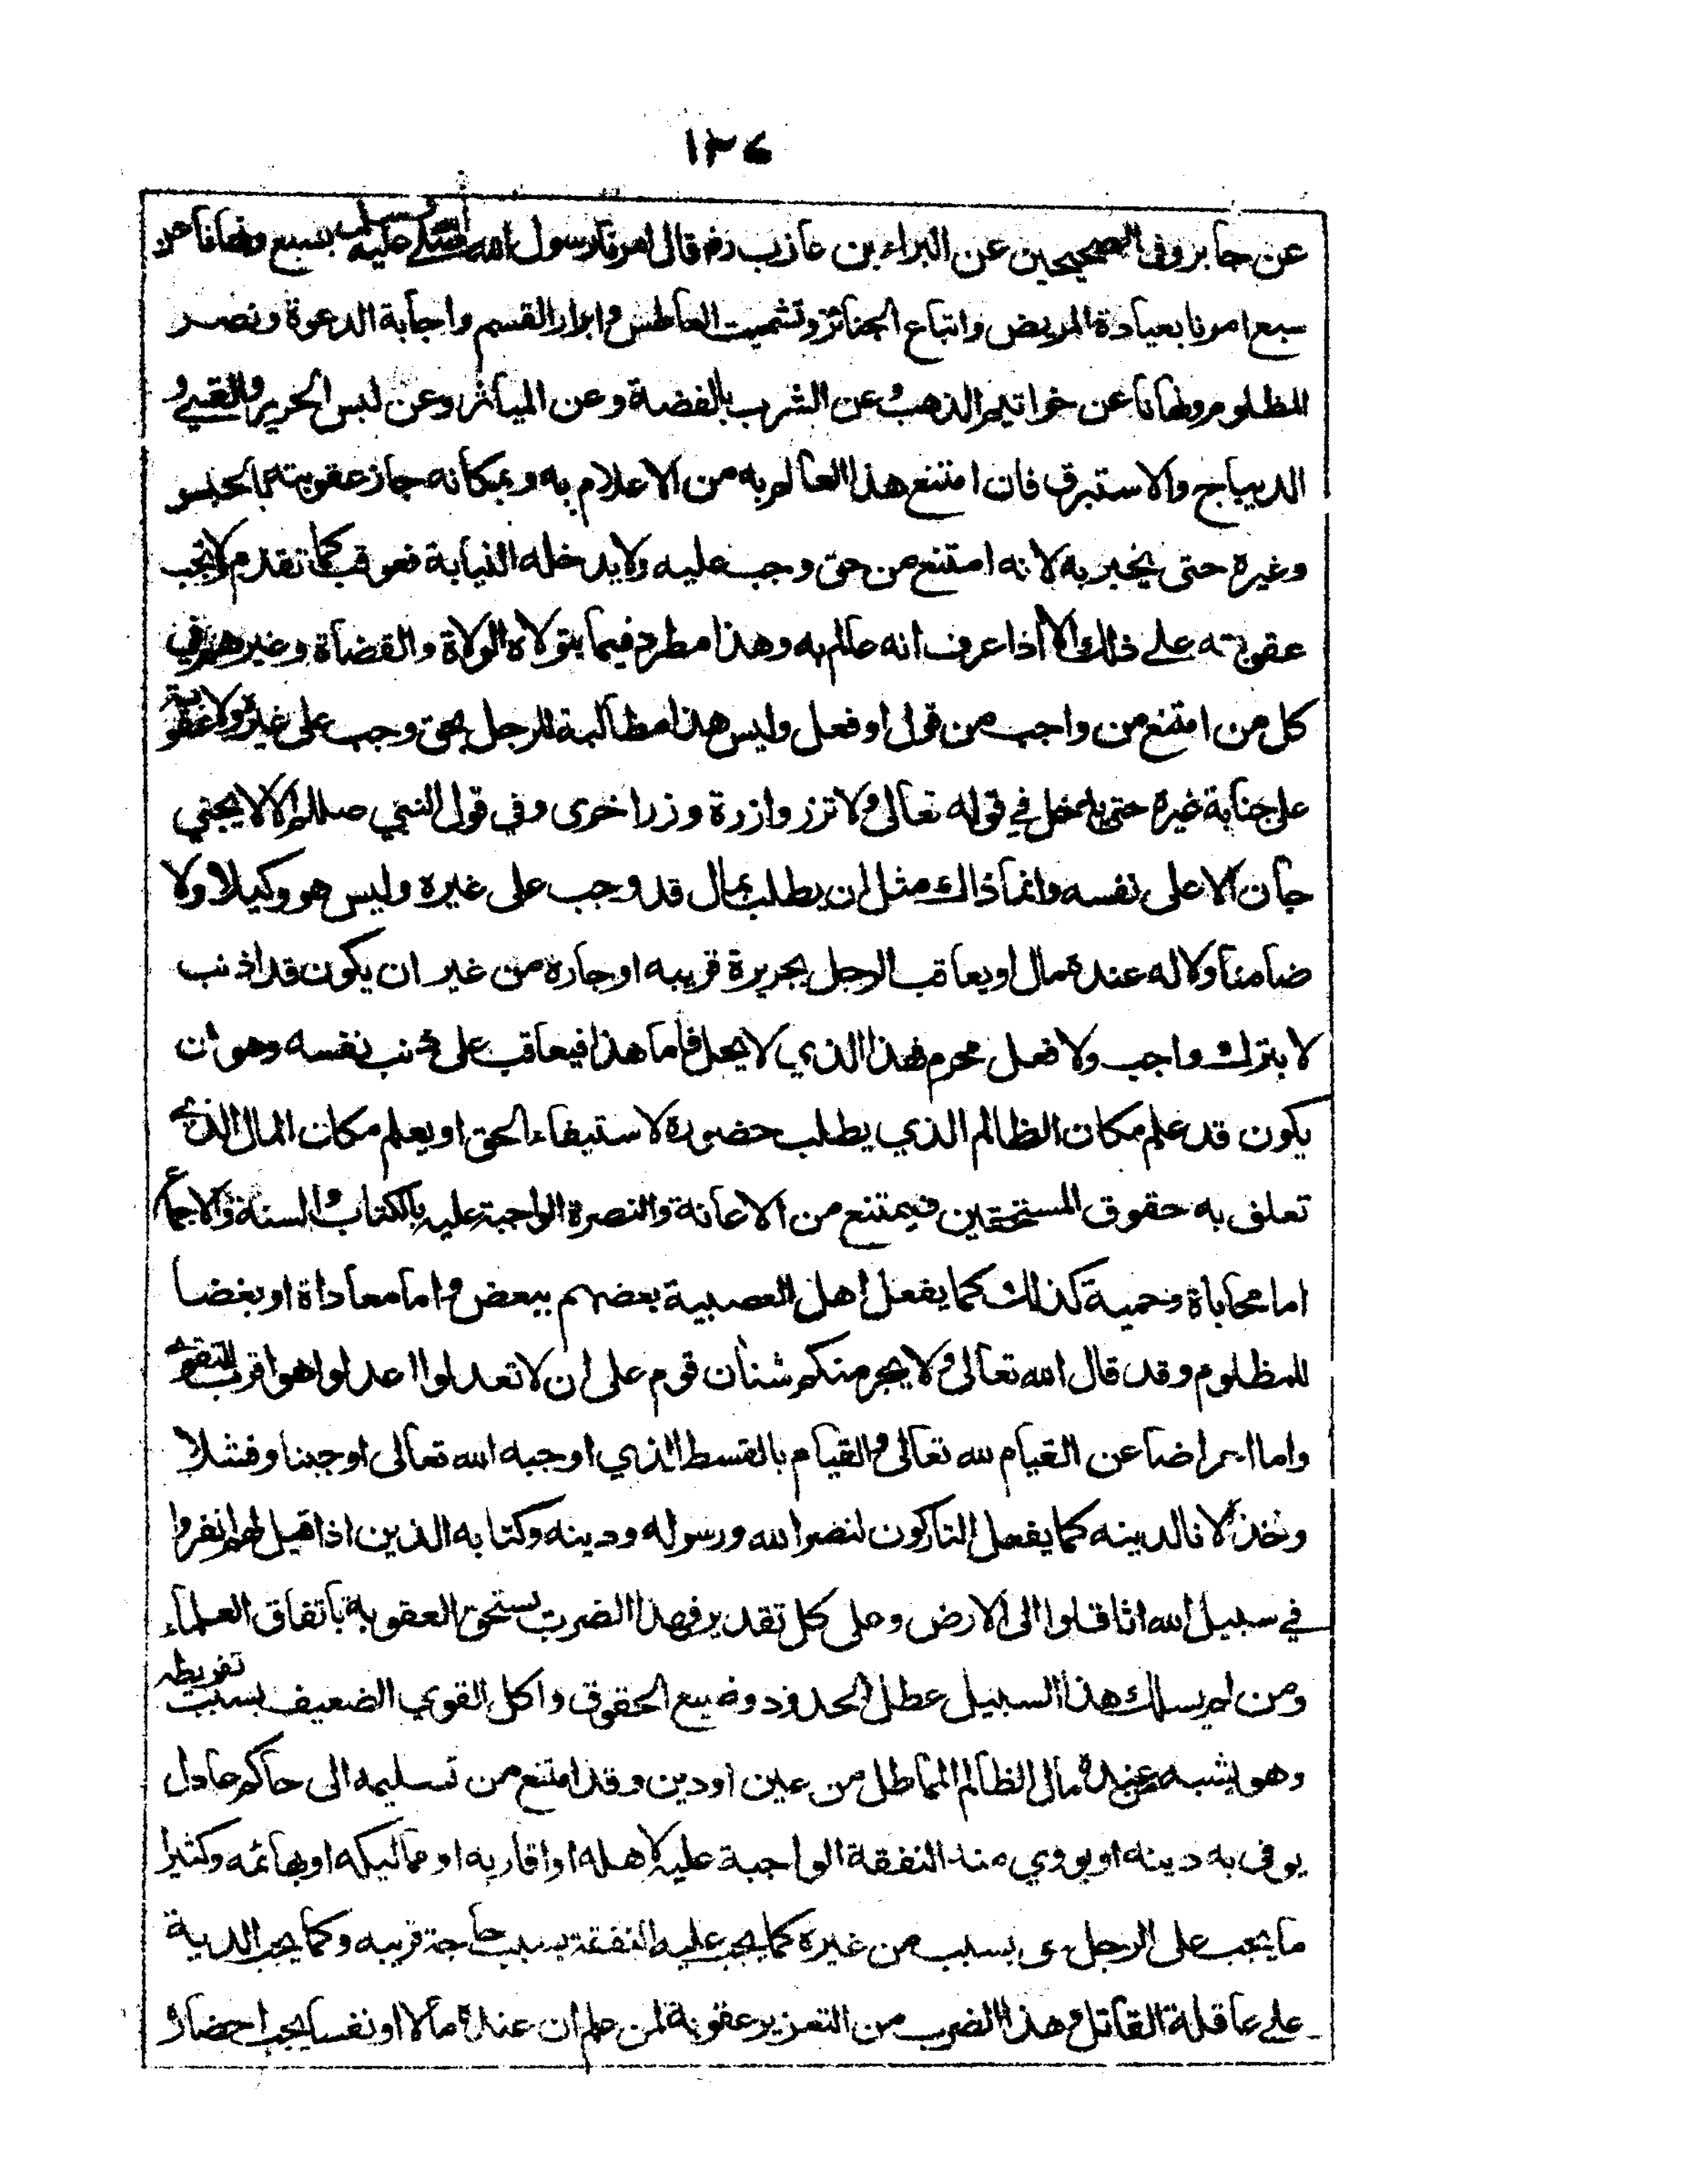 ١٣٦
عن جابر وفى الصحيحين عن البراء بن عازب رضه قال امرنا رسول الله صلى الله عليه وسلم بسبع ونهانا عن
سبع امرنا بعيادة المريض واتباع الجنائز وتشميت العاطس وابرار القسم واجابة الدعوة ونصر
المظلوم ونهانا عن خواتيم الذهب وعن الشرب بالفضة وعن المياثر وعن لبس الحرير والقسي و
الديباج والاستبرق فان امتنع هذا العالم به من الاعلام به وبمكانه جاز عقوبته بالحبس
وغيره حتى يخبر به لانه امتنع من حق وجب عليه ولا يدخله النيابة فعوقب كما تقدم ولا تجب
عقوبته على ذلك الا اذا عرف انه عالم به وهذا مطرد فيما يتولاه الولاة والقضاة وغيرهم في
كل من امتنع من واجب من قول او فعل وليس هذا مطالبة للرجل بحق وجب على غيره ولا عقوبة
على جناية غيره حتى يدخل في قوله تعالى ولا تزر وازرة وزر اخرى وفي قول النبي صللم الا لا يجني
جان الا على نفسه وانما ذالك مثل ان يطلب بمال قد وجب على غيره وليس هو وكيلا ولا
ضامنا ولا له عنده مال او يعاقب الرجل بجريرة قريبه او جاره من غير ان يكون قد اذنب
لا بترك واجب ولا فعل محرم فهذا الذي لا يحل فاما هذا فيعاقب على ذنب نفسه وهو ان
يكون قد علم مكان الظالم الذي يطلب حضوره لاستيفاء الحق او يعلم مكان المال الذي
تعلق به حقوق المستحقين فيمتنع من الاعانة والنصرة الواجبة عليه بالكتاب والسنة والاجماع
اما محاباة وحمية كذلك كما يفعل اهل العصبية بعضهم ببعض واما معاداة او بغضا
للمظلوم وقد قال الله تعالى ولا يجرمنكم شنان قوم على ان لا تعدلوا اعدلوا هو اقرب للتقوى
واما اعراضا عن القيام لله تعالى والقيام بالقسط الذي اوجبه الله تعالى او جبنا وفشلا
وخذلانا لدينه كما يفعل التاركون لنصر الله ورسوله ودينه وكتابه الذين اذا قيل لهم انفروا
في سبيل الله اثاقلوا الى الارض وعلى كل تقدير فهذا الضرب يستحق العقوبة باتفاق العلماء
ومن لم يسلك هذا السبيل عطل الحدود وضيع الحقوق واكل القوي الضعيف بسبب تفريطه
وهو يشبه عنده مال الظالم المماطل من عين او دين وقد امتنع من تسليمه الى حاكم عادل
يوفى به دينه او يودي منه النفقة الواجبة عليه لاهله او اقاربه او مماليكه او بهائمه وكثيرا
ما يجب على الرجل حق بسبب من غيره كما يجب عليه النفقة بسبب حاجة قريبه وكما يجب الدية
على عاقلة القاتل وهذا الضرب من التعزير عقوبة لمن علم ان عنده مالا او نفسا يجب احضاره